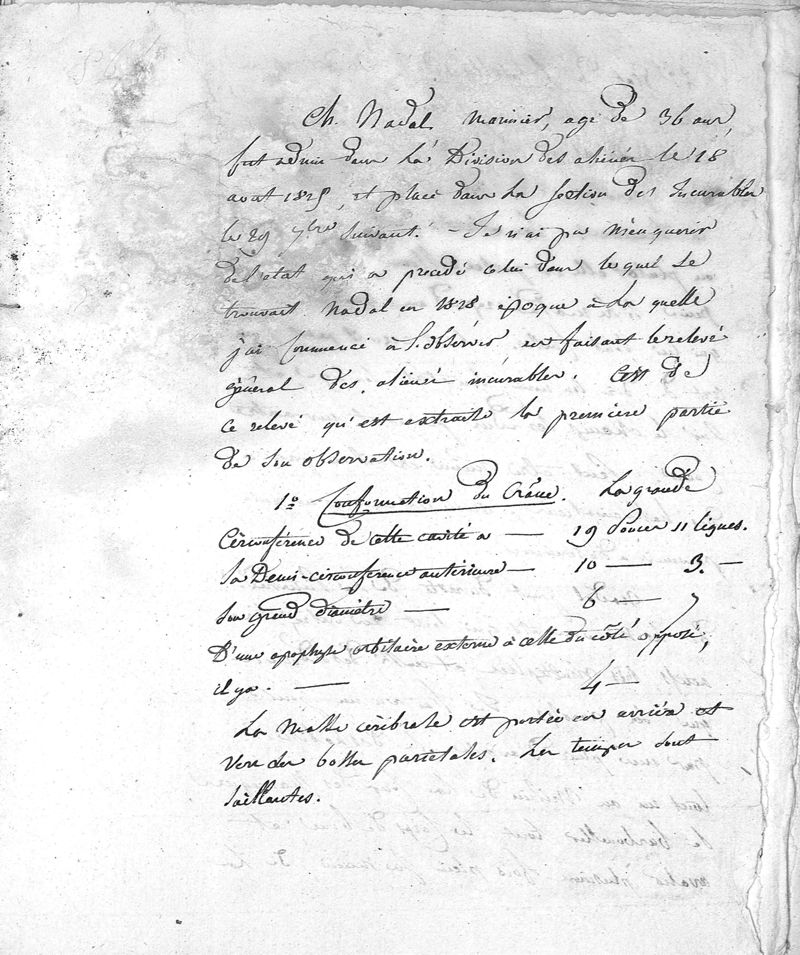 Ch. Nadal, marinier, agé de 36 ans,
fut admis dans la Division des aliénés le 18
aout 1825, et placé dans la section des Incurables
le 29 7bre suivant. - Je n'ai pu m'enquerir
de l'état qui a precedé celui dans lequel se
trouvait Nadal en 1828 époque à la quelle
j'ai commencé à l'observer en faisant le relevé
général des aliénés incurables. C'est de
ce relevé qu'est extraite la premiere partie
de son observation.
1º Conformation du Crâne. La grande
Circonférence de cette cavité a — 19 Pouces 11 lignes.
Sa Demi-circonférence antérieure — 10 — 3. —
Son grand diamètre — 6 — 7
D'une apophyse orbitaire externe à celle du côté opposé,
il y a. — 4 —
La Masse cérébrale est portée en arrière et
vers les bosses pariétales. Les tempes sont
saillantes.